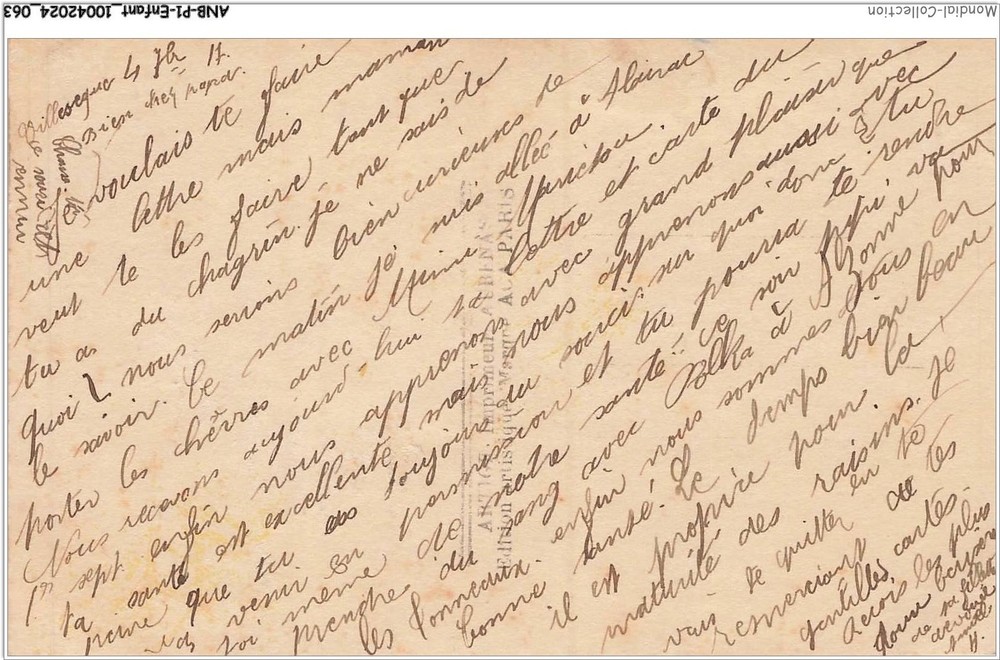 Villesèque 4 7bre 17.
Bien cher papa.
voulais te faire
une lettre mais maman
veut te les faire tant que
tu as du chagrin. Je ne sais de
quoi nous serions bien curieuses de
le savoir. Ce matin je suis allée à
porter les chèvres avec Mimi
Nous recevons aujourd'hui ta lettre et carte du
1er sept. enfin nous apprenons avec grand plaisir que
ta santé est excellente mais nous apprenons aussi avec
peine que tu as toujours du souci sur quoi donc
vas venir en permission et tu pourra te rendre
toi même de notre santé. Ce soir papi va
prendre du sang avec Polka à pour
les tonneaux. enfin nous sommes tous en
bonne santé. Le temps bien beau
il est propice pour la
maturité des raisins. Je
vais te quitter en te
remerciant de tes
gentilles cartes.
Reçois les plus
doux baisers
de ta fillette
dévouée
ARTIGE Imprimeur
Edition artistique Marque A. PARIS
Mondial-Collection
ANB-P1-Enfant_10042024_063